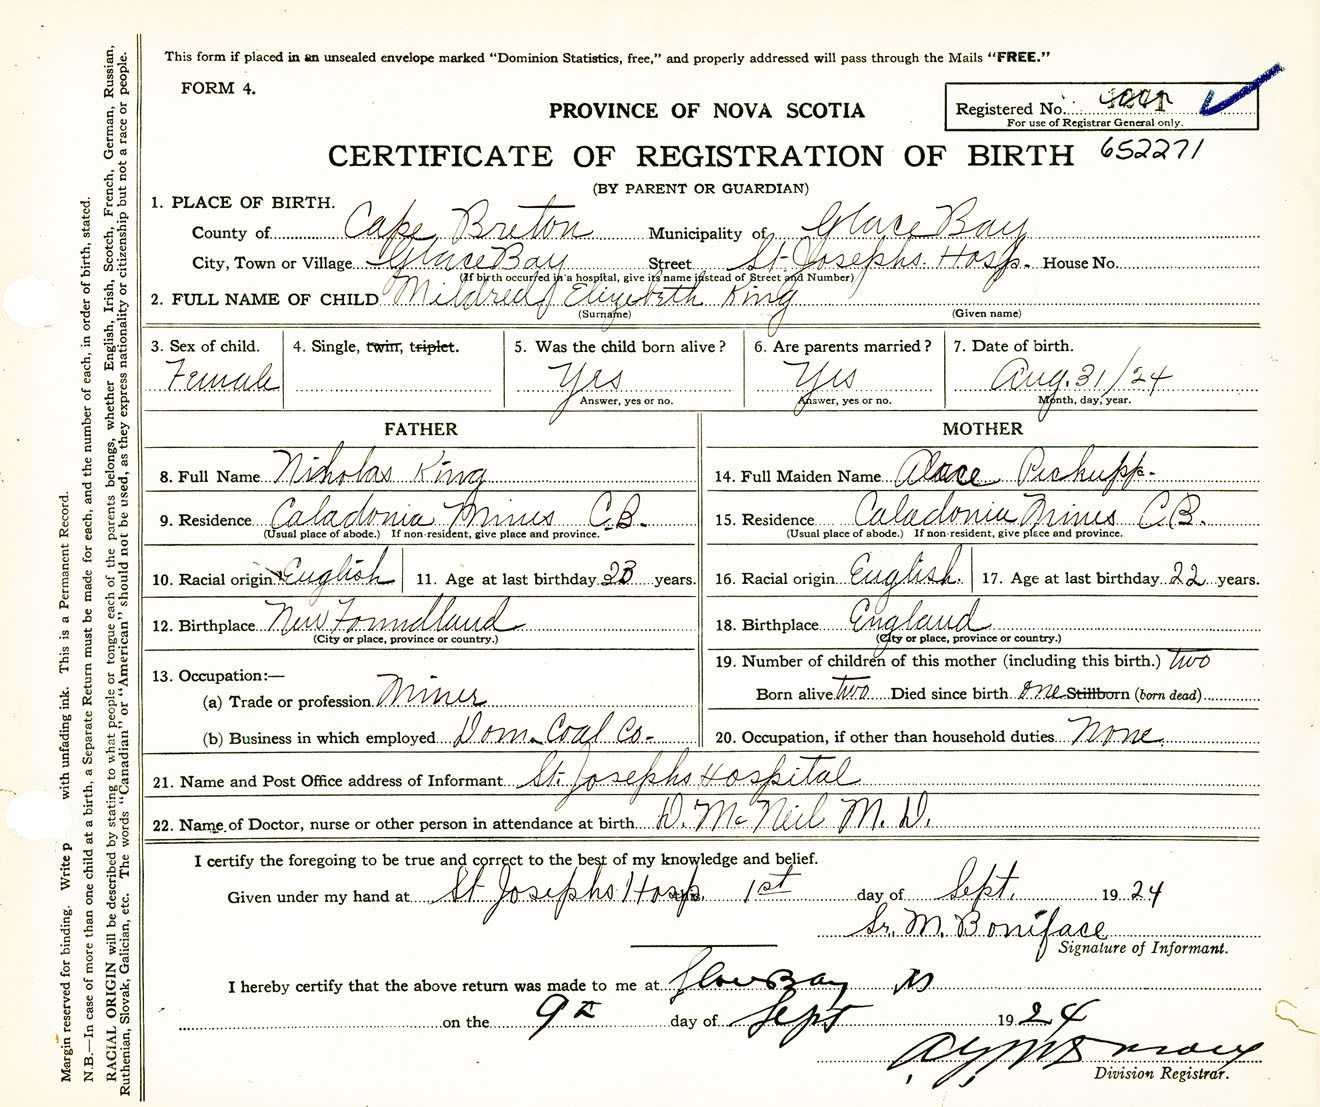 This form if placed in an unsealed envelope marked "Dominion Statistics, free," and properly addressed will pass through the Mails "FREE."
FORM 4.
PROVINCE OF NOVA SCOTIA
Registered No.
For use of Registrar General only.
CERTIFICATE OF REGISTRATION OF BIRTH 652271
(BY PARENT OR GUARDIAN)
1. PLACE OF BIRTH.
County of Cape Breton Municipality of Glace Bay
City, Town or Village Glace Bay Street St. Josephs. Hosp. House No.
(If birth occurred in a hospital, give its name instead of Street and Number)
2. FULL NAME OF CHILD Mildred Elizebeth King
(Surname) (Given name)
3. Sex of child. 4. Single, twin, triplet. 5. Was the child born alive? 6. Are parents married? 7. Date of birth.
Female Yes Yes Aug. 31/24
Answer, yes or no. Answer, yes or no. Month, day, year.
FATHER MOTHER
8. Full Name Nicholas King 14. Full Maiden Name Pickupp.
9. Residence Caladonia Mines C.B. 15. Residence Caladonia Mines C.B.
(Usual place of abode.) If non-resident, give place and province. (Usual place of abode.) If non-resident, give place and province.
10. Racial origin English 11. Age at last birthday 23 years. 16. Racial origin English. 17. Age at last birthday 22 years.
12. Birthplace New Foundland 18. Birthplace England
(City or place, province or country.) (City or place, province or country.)
13. Occupation:— 19. Number of children of this mother (including this birth.) two
(a) Trade or profession Miner Born alive two Died since birth one Stillborn (born dead)
(b) Business in which employed Dom. Coal Co. 20. Occupation, if other than household duties None.
21. Name and Post Office address of Informant St. Josephs Hospital
22. Name of Doctor, nurse or other person in attendance at birth D. McNeil M.D.
I certify the foregoing to be true and correct to the best of my knowledge and belief.
Given under my hand at St Josephs Hosp. this 1st day of Sept. 1924
Sr. M. Boniface
Signature of Informant.
I hereby certify that the above return was made to me at Glace Bay NS
on the 9th day of Sept 1924
Division Registrar.
Margin reserved for binding. Write p with unfading ink. This is a Permanent Record.
N.B.—In case of more than one child at a birth, a Separate Return must be made for each, and the number of each, in order of birth, stated.
RACIAL ORIGIN will be described by stating to what people or tongue each of the parents belongs, whether English, Irish, Scotch, French, German, Russian,
Ruthenian, Slovak, Galician, etc. The words "Canadian" or "American" should not be used, as they express nationality or citizenship but not a race or people.